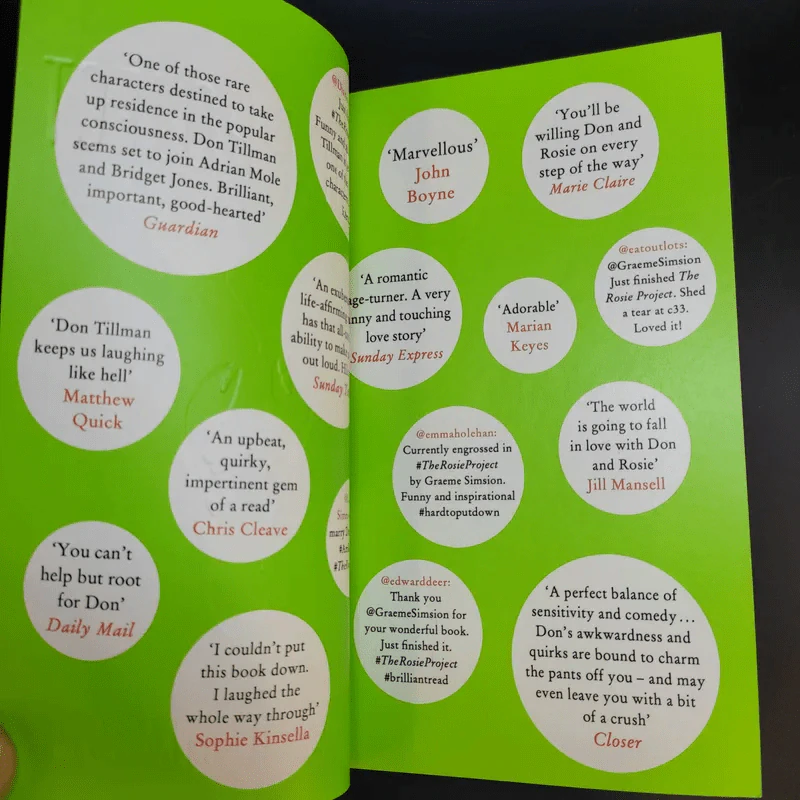 ‘One of those rare
characters destined to take
up residence in the popular
consciousness. Don Tillman
seems set to join Adrian Mole
and Bridget Jones. Brilliant,
important, good-hearted’
Guardian
Funny and
Tillman
one of
‘Don Tillman
keeps us laughing
like hell’
Matthew
Quick
‘An
life-affirming
has that
ability to make
out loud.
Sunday
‘An upbeat,
quirky,
impertinent gem
of a read’
Chris Cleave
‘You can’t
help but root
for Don’
Daily Mail
marry
‘I couldn’t put
this book down.
I laughed the
whole way through’
Sophie Kinsella
‘Marvellous’
John
Boyne
‘You’ll be
willing Don and
Rosie on every
step of the way’
Marie Claire
‘A romantic
age-turner. A very
nny and touching
love story’
Sunday Express
‘Adorable’
Marian
Keyes
@eatoutlots:
@GraemeSimsion
Just finished The
Rosie Project. Shed
a tear at c33.
Loved it!
@emmaholehan:
Currently engrossed in
#TheRosieProject
by Graeme Simsion.
Funny and inspirational
#hardtoputdown
‘The world
is going to fall
in love with Don
and Rosie’
Jill Mansell
@edwarddeer:
Thank you
@GraemeSimsion for
your wonderful book.
Just finished it.
#TheRosieProject
#brilliantread
‘A perfect balance of
sensitivity and comedy ...
Don’s awkwardness and
quirks are bound to charm
the pants off you – and may
even leave you with a bit
of a crush’
Closer